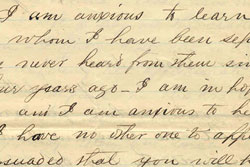 I am anxious to learn
whom I have been sep
never heard from them sin
years ago - I am in hop
am I am anxious to he
I have no other one to app
suaded that you will